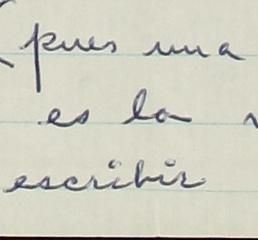 (pues una
es la
escribir